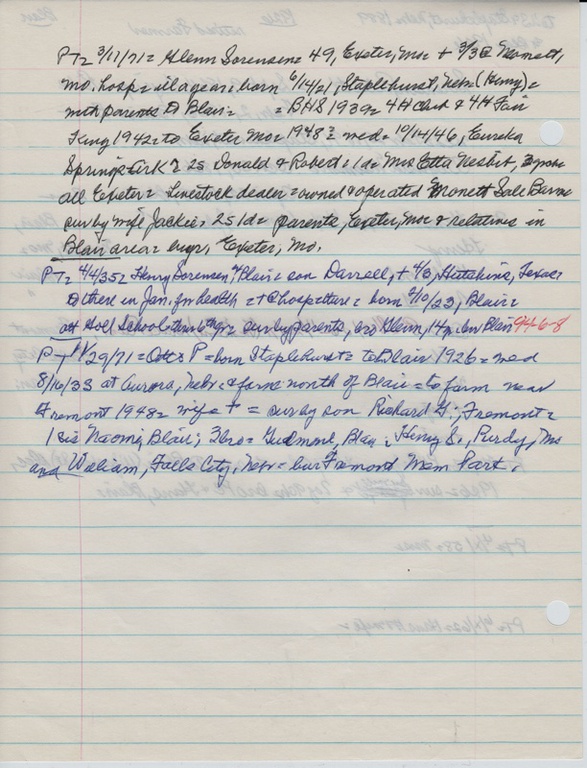 PT= 3/11/71= Glenn Sorensen= 49, Exeter, Mo= + 3/3 @ Monett,
Mo. hosp= ill a year= born 6/14/21, Staplehurst, Nebr (Henry)=
with parents to Blair= = BHS 1939= 4H Club & 4H Fair
King 1942= to Exeter Mo= 1948= med= 10/14/46, Eureka
Springs Ark= 2s Donald & Robert= 1d= Mrs Etta Nesbit,
all Exeter= Livestock dealer= owned & operated Monett Sale Barn=
sur by wife Jackie, 2s 1d= parents, Exeter, Mo= & relatives in
Blair area= bur, Exeter, Mo.
PT= 4/4/35= Henry Sorensen, Blair= son Darrell, + 4/3, Hutchins, Texas
to there in Jan. for health = + @ hosp there= born 2/10/23, Blair=
att Holl School thru 6th gr= sur by parents, bro Glenn, 14= bur Blair 94-6-8
P- 11/29/71= Otto P= born Staplehurst= to Blair 1926= med
8/16/33 at Aurora, Nebr= & farm north of Blair= to farm near
Fremont 1948= wife + = sur by son Richard G., Fremont=
1 sis Naomi, Blair; 3 bro= Gudmond, Blair, Henry S., Purdy, Mo
and William, Falls City, Nebr= bur Fremont Mem Park.